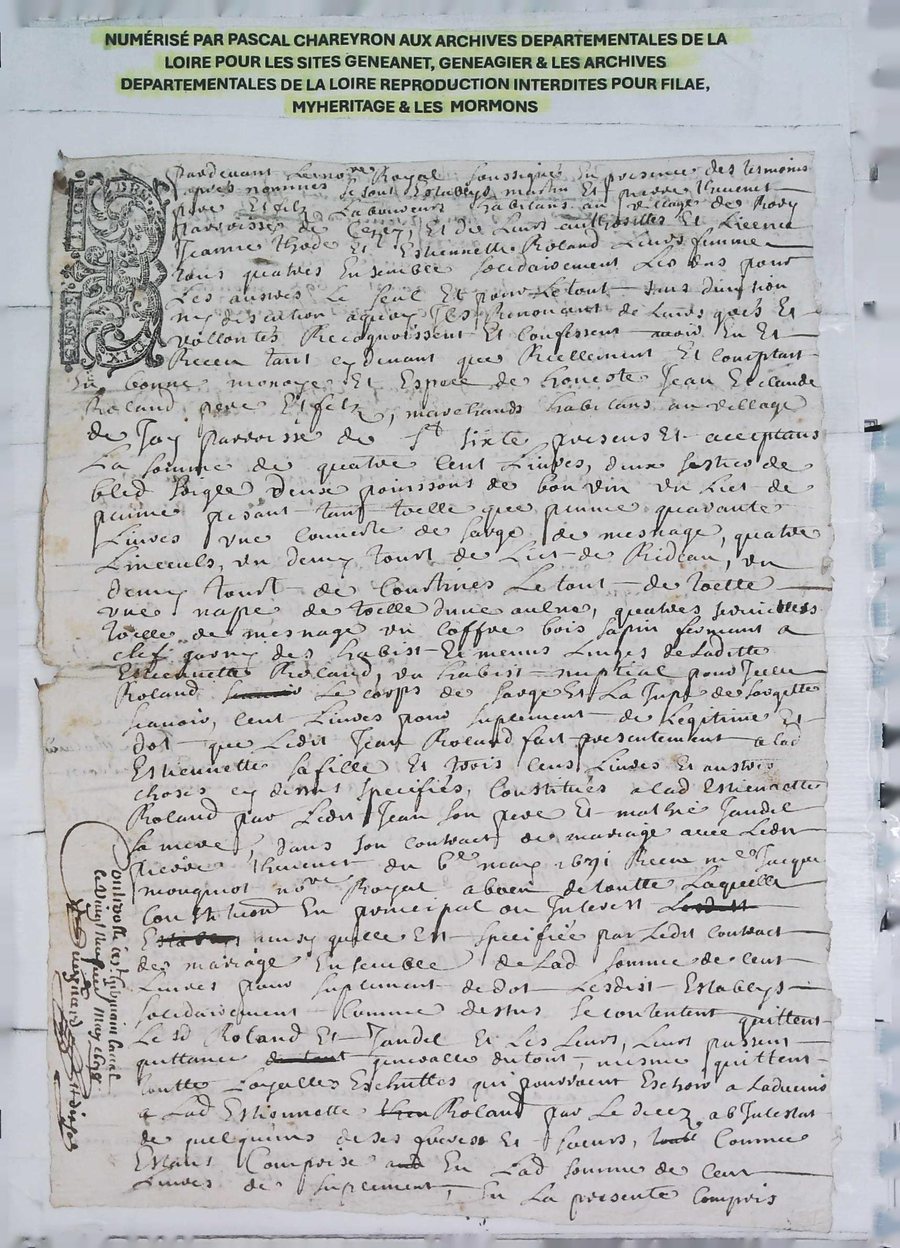 NUMÉRISÉ PAR PASCAL CHAREYRON AUX ARCHIVES DEPARTEMENTALES DE LA
LOIRE POUR LES SITES GENEANET, GENEAGIER & LES ARCHIVES
DEPARTEMENTALES DE LA LOIRE REPRODUCTION INTERDITES POUR FILAE,
MYHERITAGE & LES MORMONS
Pardevant le no.re Royal soussigné En presence des tesmoins
apres nommes se sont Establys martin Et pierre
pere Et filz Laboureurs habitans au village de
parroisse de Et de Leurs authorittes Et Licence
Jeanne Et Estiennette Roland Leurs femme
tous quatres Ensemble solidairement Les uns pour
Les autres Le seul Et pour Le tout sans division
ny discution Renoncant de Leurs grés Et
vollontés Recognoissent Et Confessent avoir Eu Et
Receu tant cy devant que Reellement Et comptant
En bonne monoye Et Espece de honeste Jean Et claude
Roland pere Et filz, marchands habitans au village
de Jay parroisse de St Sixte presens Et acceptans
La somme de quatre cent Livres, deux sestiers de
bled seigle deux poinssons de bon vin un Lict de
plume pesant tant toille que plume quarante
Livres une couverte de sarge de mesnage, quatre
Linceuls, un demy tourt de Lict de Rideau, un
demy tourt de Courtines Le tout de toille
une nape de toille dune aulne, quatres serviettes
toille de mesnage un coffre bois sapin fermant a
clef garny des habist Et menus Linges de Laditte
Estiennette Roland, un habist nuptial pour Jcelle
Roland Le corps de sarge Et La Jupe de sargette
scavoir, cent Livres pour suplement de Legitime Et
dot que Ledit Jean Roland fait presentement a lad
Estiennette sa fille Et trois cens Livres Et autres
choses cy dessus specifiés, Constitués a lad Estiennette
Roland par Ledit Jean son pere Et Jandel
sa mere dans son contract de mariage avec Ledit
pierre du 6e may 1691 Receu me Jacque
mougniot no.re Royal a boen de toutte Laquelle
Constitution En principal ou Interest
ainsy quelle Est specifiée par Ledit contract
de mariage Ensemble de Lad somme de cent
Livres pour suplement de dot Lesdist Establys
solidairement Comme dessus se contentent quittent
Le sd Roland Et Jandel Et Les Leurs, Leurs passent
quittance generalle du tout, mesme quittent
touttes Loyalles Escheuttes qui pourroient Eschoir a Ladvenir
a Lad Estiennette Roland par Le decez ab Intestat
de quelquuns de ses freres Et soeurs, Comme
Estant Comprise En Lad somme de cent
Livres de suplement, En La presente Compris